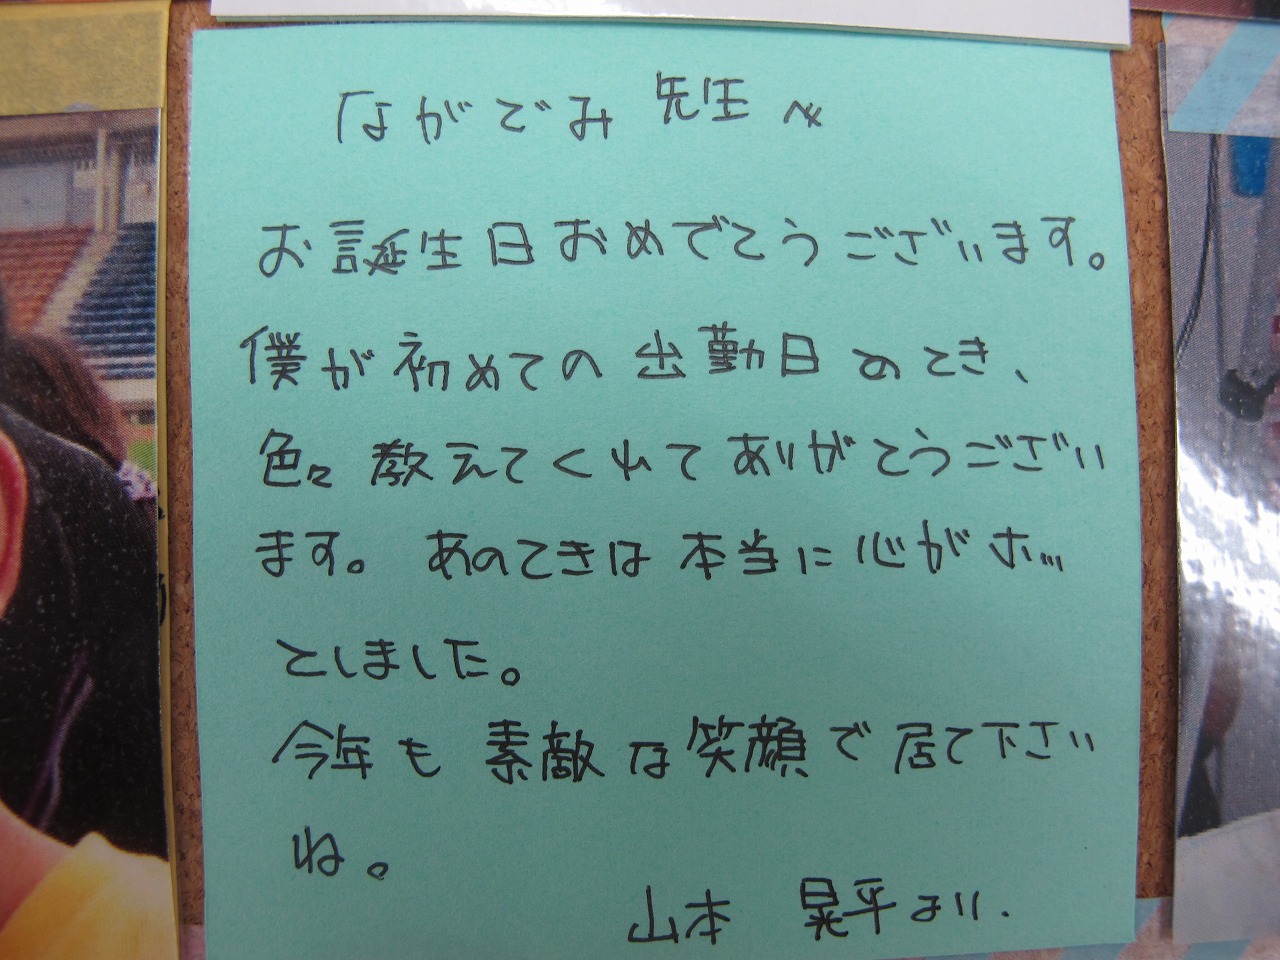 ながでみ 先生へ
お誕生日おめでとうございます。
僕が初めての出勤日のとき、
色々教えてくれてありがとうござい
ます。あのときは本当に心がホッ
としました。
今年も素敵な笑顔で居て下さい
ね。
山本 晃平より.